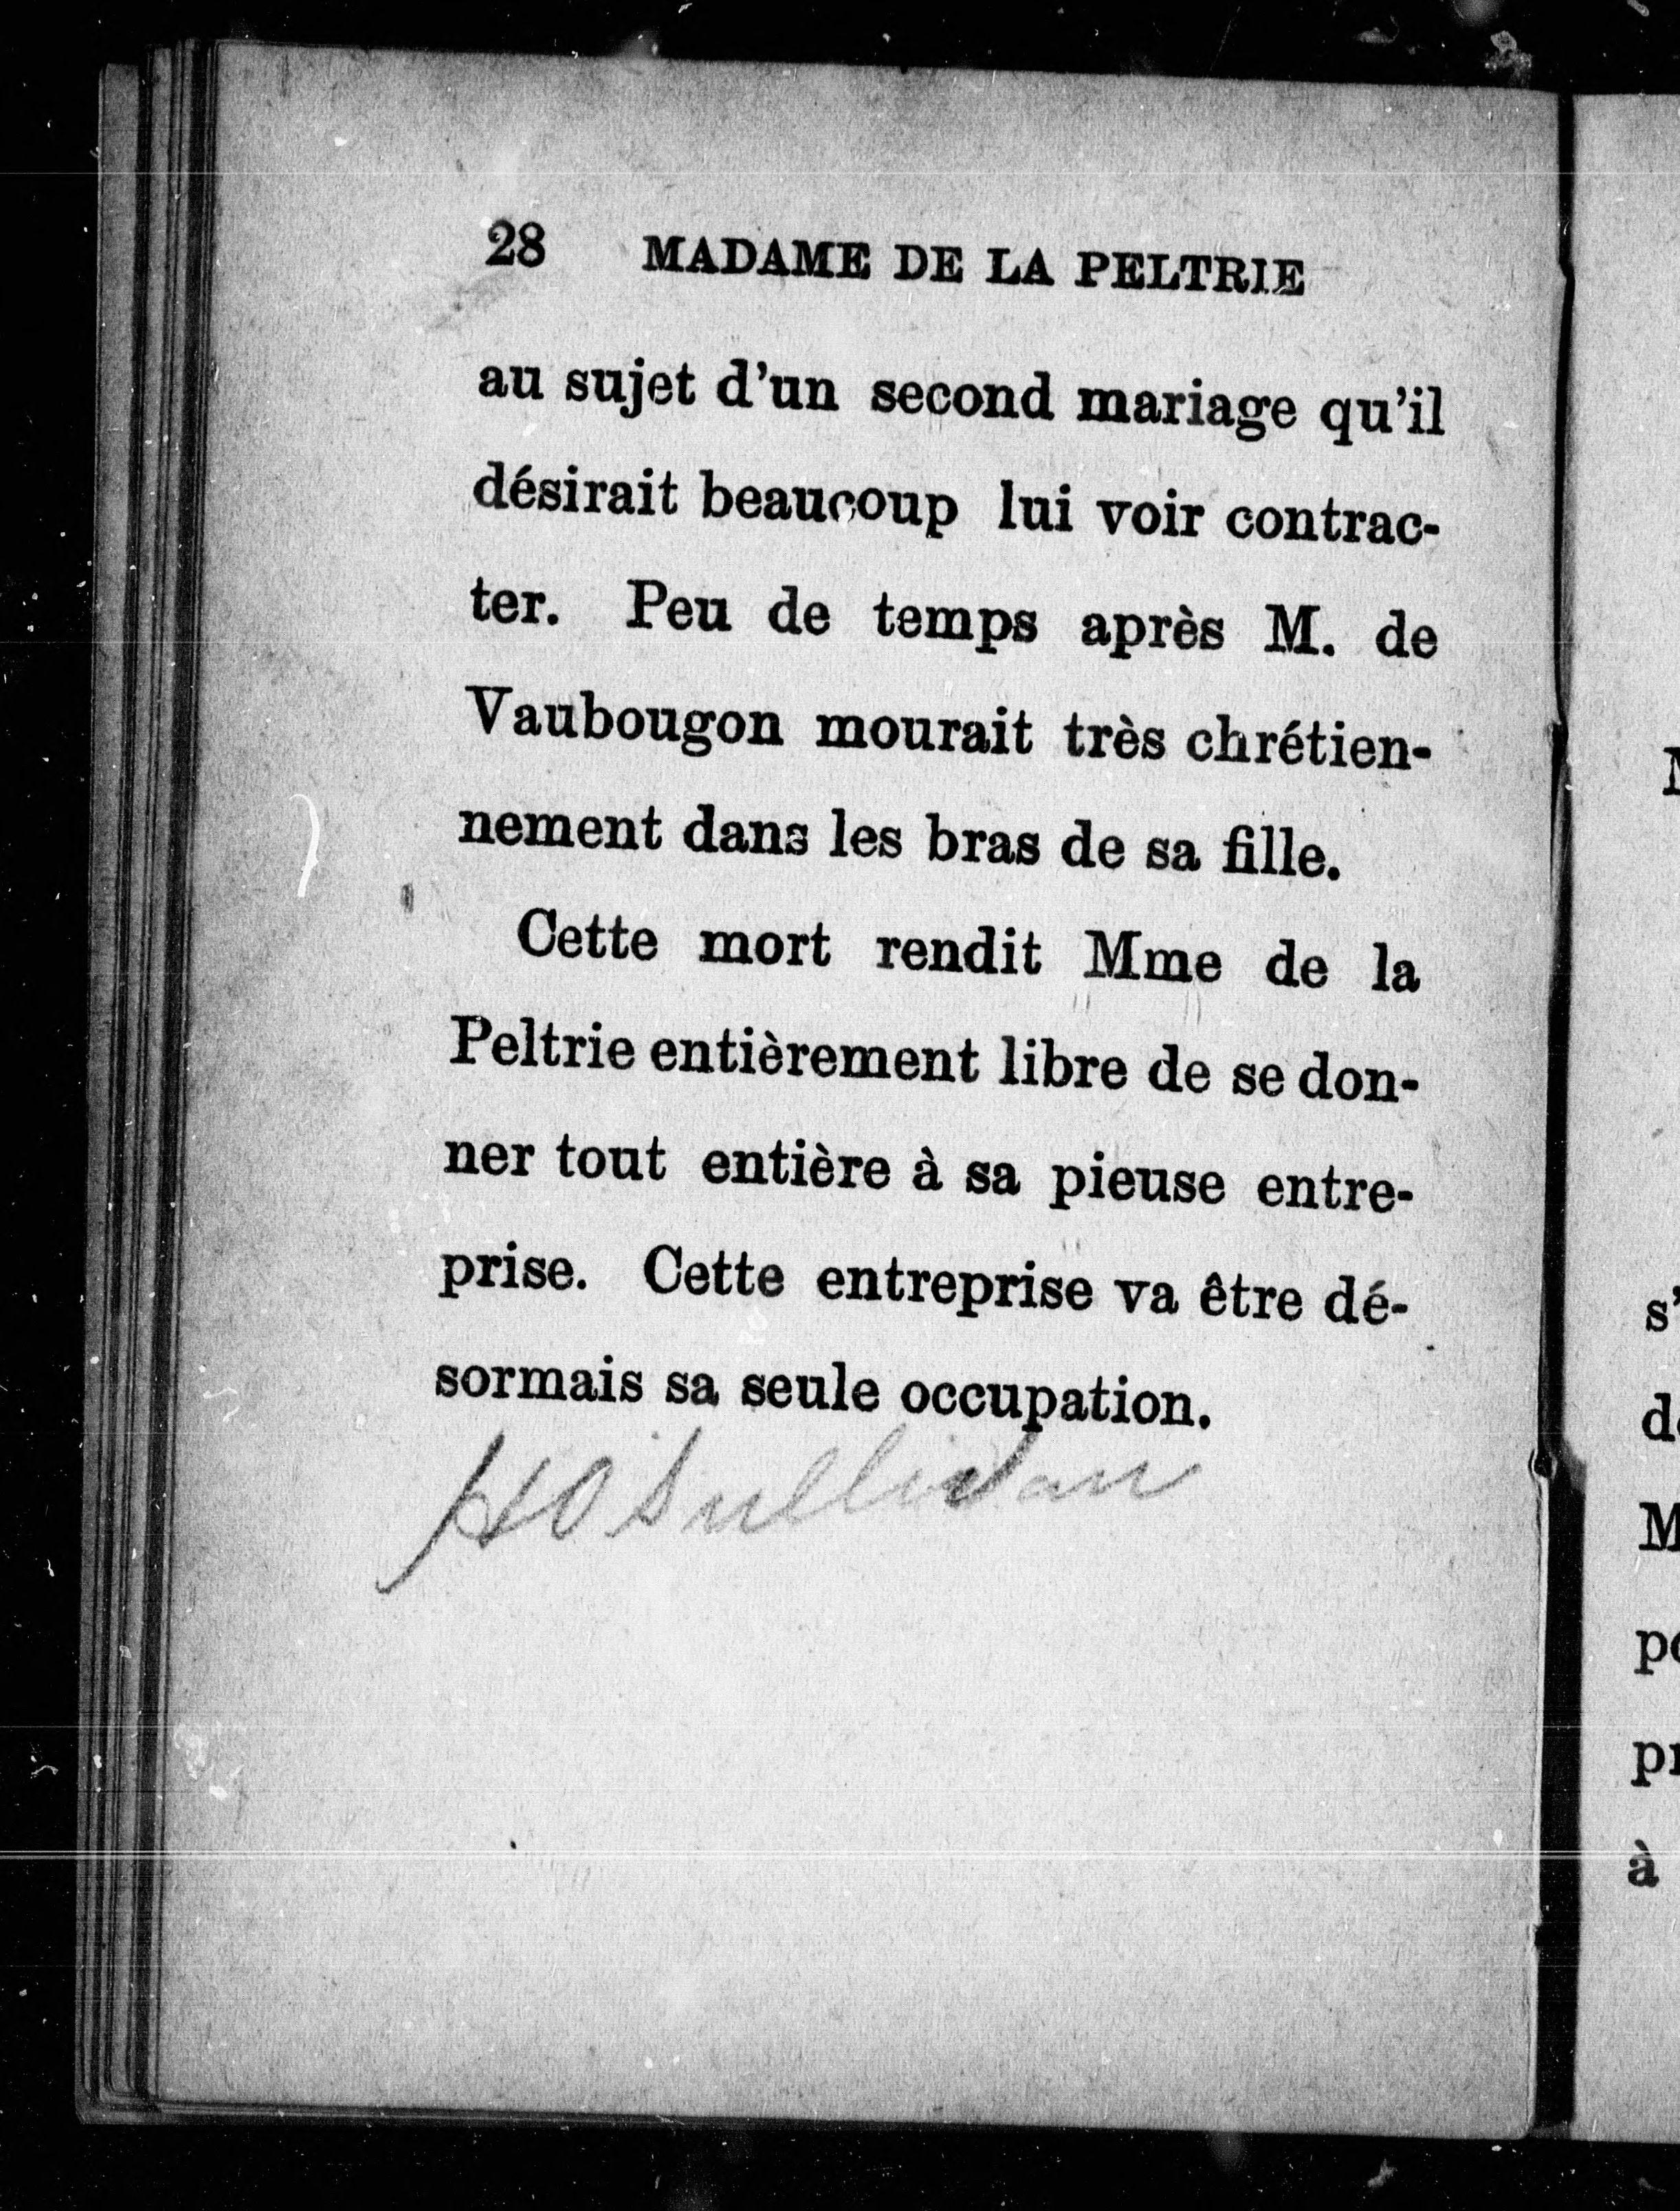 28 MADAME DE LA PELTRIE
au sujet d'un second mariage qu'il
désirait beaucoup lui voir contrac-
ter. Peu de temps après M. de
Vaubougon mourait très chrétien-
nement dans les bras de sa fille.
Cette mort rendit Mme de la
Peltrie entièrement libre de se don-
ner tout entière à sa pieuse entre-
prise. Cette entreprise va être dé-
sormais sa seule occupation.
O'Sullivan
s'
M
à